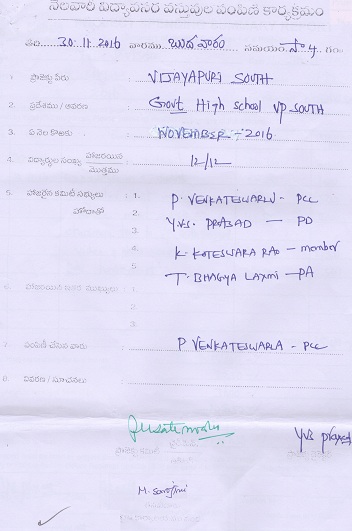 నెలవారీ విద్యావసర వస్తువుల పంపిణీ కార్యక్రమం
తేది 30.11.2016 వారము బుధవారం సమయం సా 4 గం
1. ప్రాజెక్టు పేరు VIJAYAPURI SOUTH
2. ప్రదేశము / ఆవరణ Govt High school VP SOUTH
3. ఏ నెల కొఱకు NOVEMBER - 2016
4. విద్యార్థుల సంఖ్య హాజరయిన / మొత్తము 12/12
5. హాజరైన కమిటీ సభ్యులు : 1. P. VENKATESWARLU - PCC
హోదాతో 2. Y.V.S. PRASAD - PD
3.
4. K. KOTESWARA RAO - member
5. T. BHAGYA LAXMI - PA
6. హాజరయిన ఇతర ముఖ్యులు : 1.
2.
3.
7. పంపిణీ చేసిన వారు P. VENKATESWARLA - PCC
8. వివరణ / సూచనలు
YVS prasad
M. Sarojini